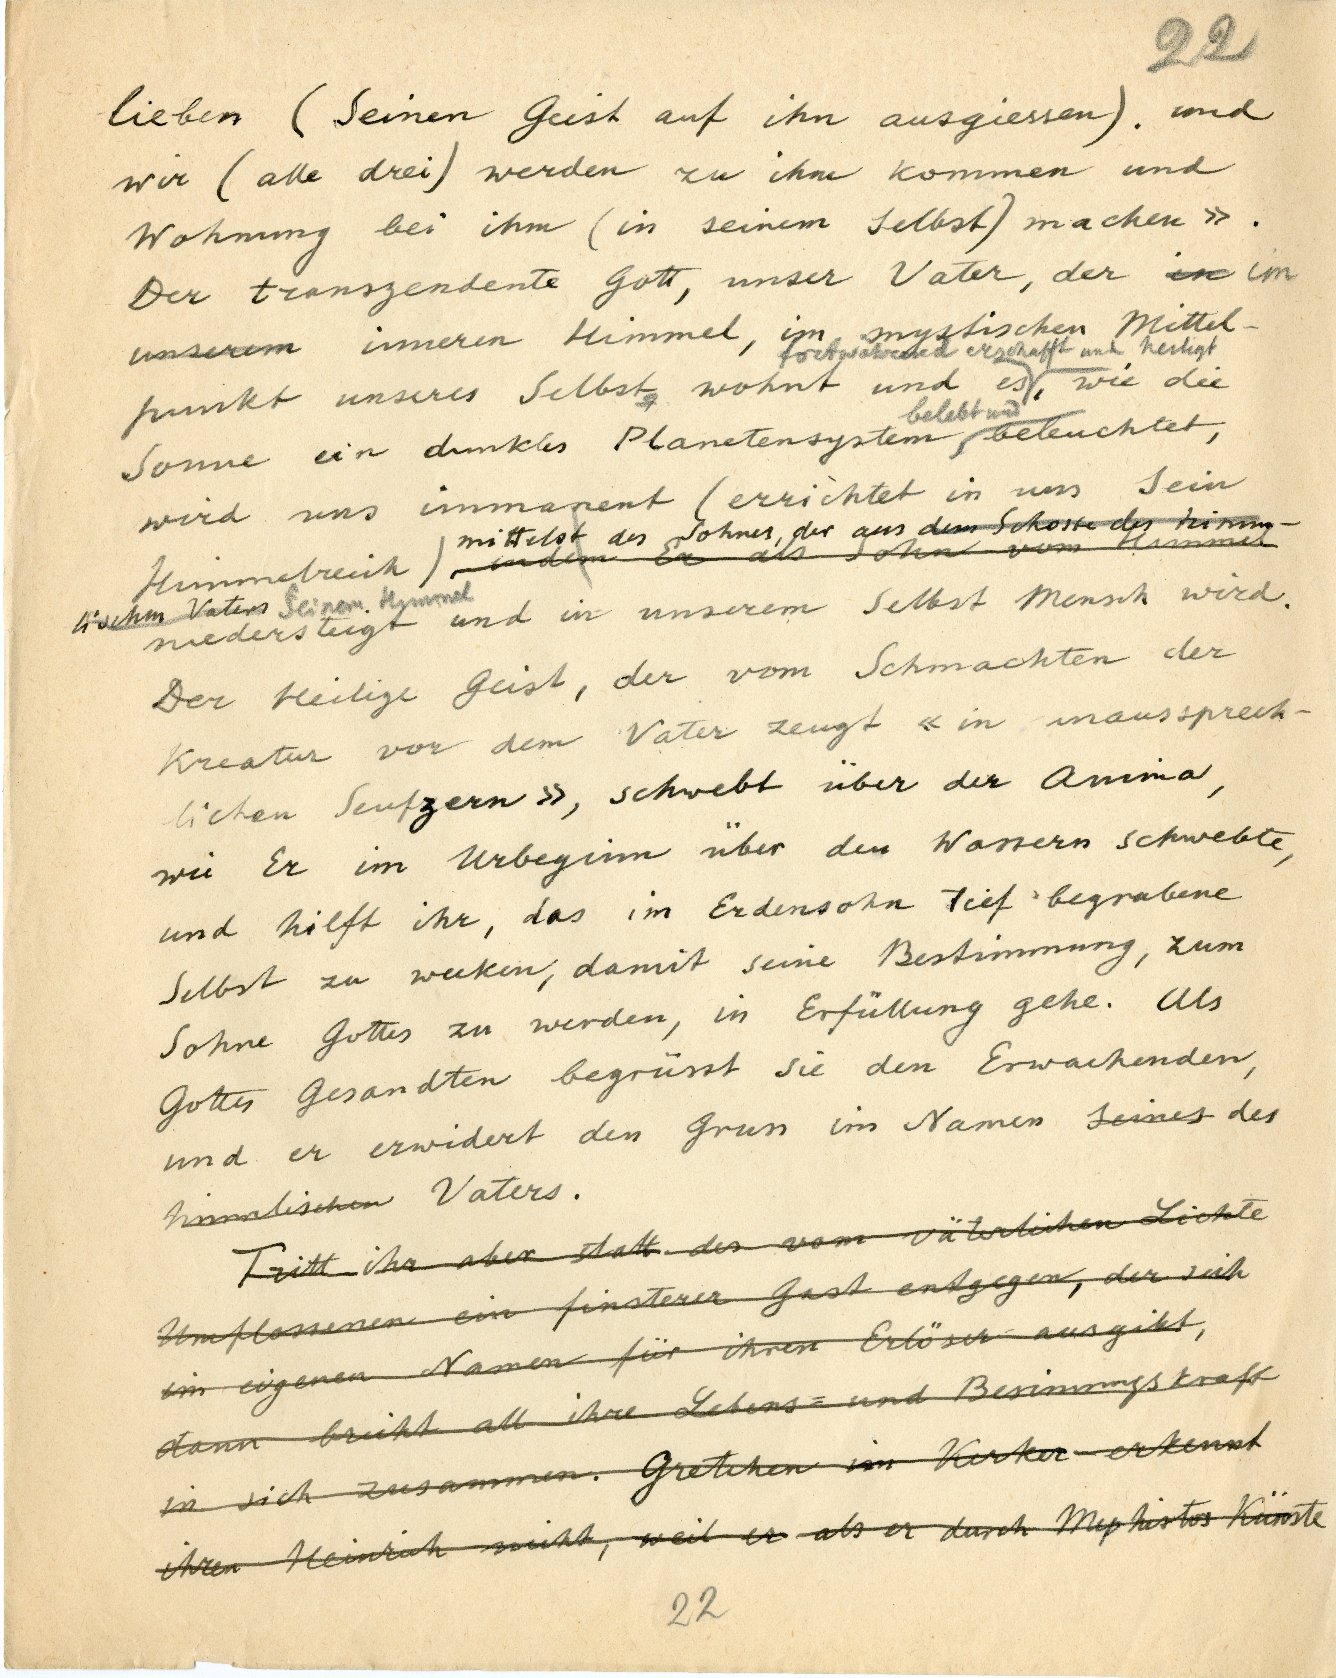 22
lieben (Seinen Geist auf ihn ausgiessen). und
wir (alle drei) werden zu ihm kommen und
Wohnung bei ihm (in seinem Selbst) machen».
Der transzendente Gott, unser Vater, der in im
unserem inneren Himmel, im mystischen Mittel-
fortwährend erschafft und heiligt
punkt unseres Selbst, wohnt und es, wie die
belebt und
Sonne ein dunkles Planetensystem, beleuchtet,
wird uns immanent (errichtet in uns Sein
mittelst des Sohnes, der aus dem Schosse des himm-
Himmelreich) indem Er als Sohn vom Himmel
lischen Vaters Seinem Himmel
niedersteigt und in unserem Selbst Mensch wird.
Der Heilige Geist, der vom Schmachten der
Kreatur vor dem Vater zeugt «in unaussprech-
lichen Seufzern», schwebt über der Anima,
wie Er im Urbeginn über den Wassern schwebte,
und hilft ihr, das im Erdensohn tief begrabene
Selbst zu wecken, damit seine Bestimmung, zum
Sohne Gottes zu werden, in Erfüllung gehe. Als
Gottes Gesandten begrüsst sie den Erwachenden,
und er erwidert den Gruss im Namen seines des
himmlischen Vaters.
Tritt ihr aber statt des vom väterlichen Lichte
Umflossenen ein finsterer Gast entgegen, der sich
im eigenen Namen für ihren Erlöser ausgibt,
dann bricht all ihre Lebens= und Besinnungskraft
in sich zusammen. Gretchen im Kerker erkennt
ihren Heinrich nicht, weil er als er durch Mephistos Künste
22